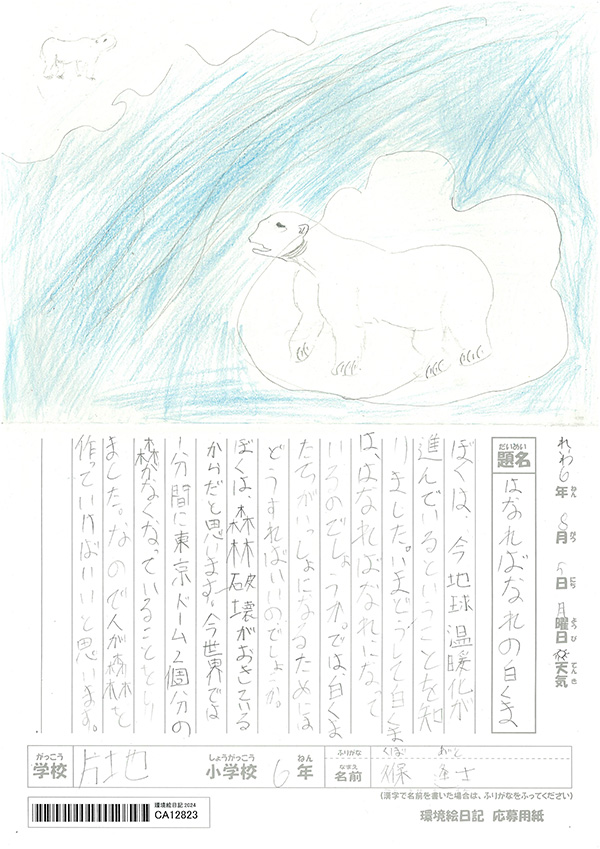 れいわ6年ねん 8月がつ 5日にち 月曜日ようび 天気てんき
題名だいめい はなればなれの白くま
ぼくは、今地球温暖化が
進んでいるということを知
りました。いまどうして白くま
は、はなればなれになって
いるのでしょうか。では、白くま
たちがいっしょになるためには
どうすればいいのでしょか。
ぼくは、森林破壊がおきている
からだと思います。今世界では
1分間に東京ドーム2個分の
森がなくなっていることとしり
ました。なので人が森林を
作っていけばいいと思います。
学校がっこう 片地 小学校しょうがっこう 6年ねん ふりがな 名前なまえ くぼ
(漢字で名前を書いた場合は、ふりがなをふってください)
環境絵日記 2024
CA12823
環境絵日記 応募用紙